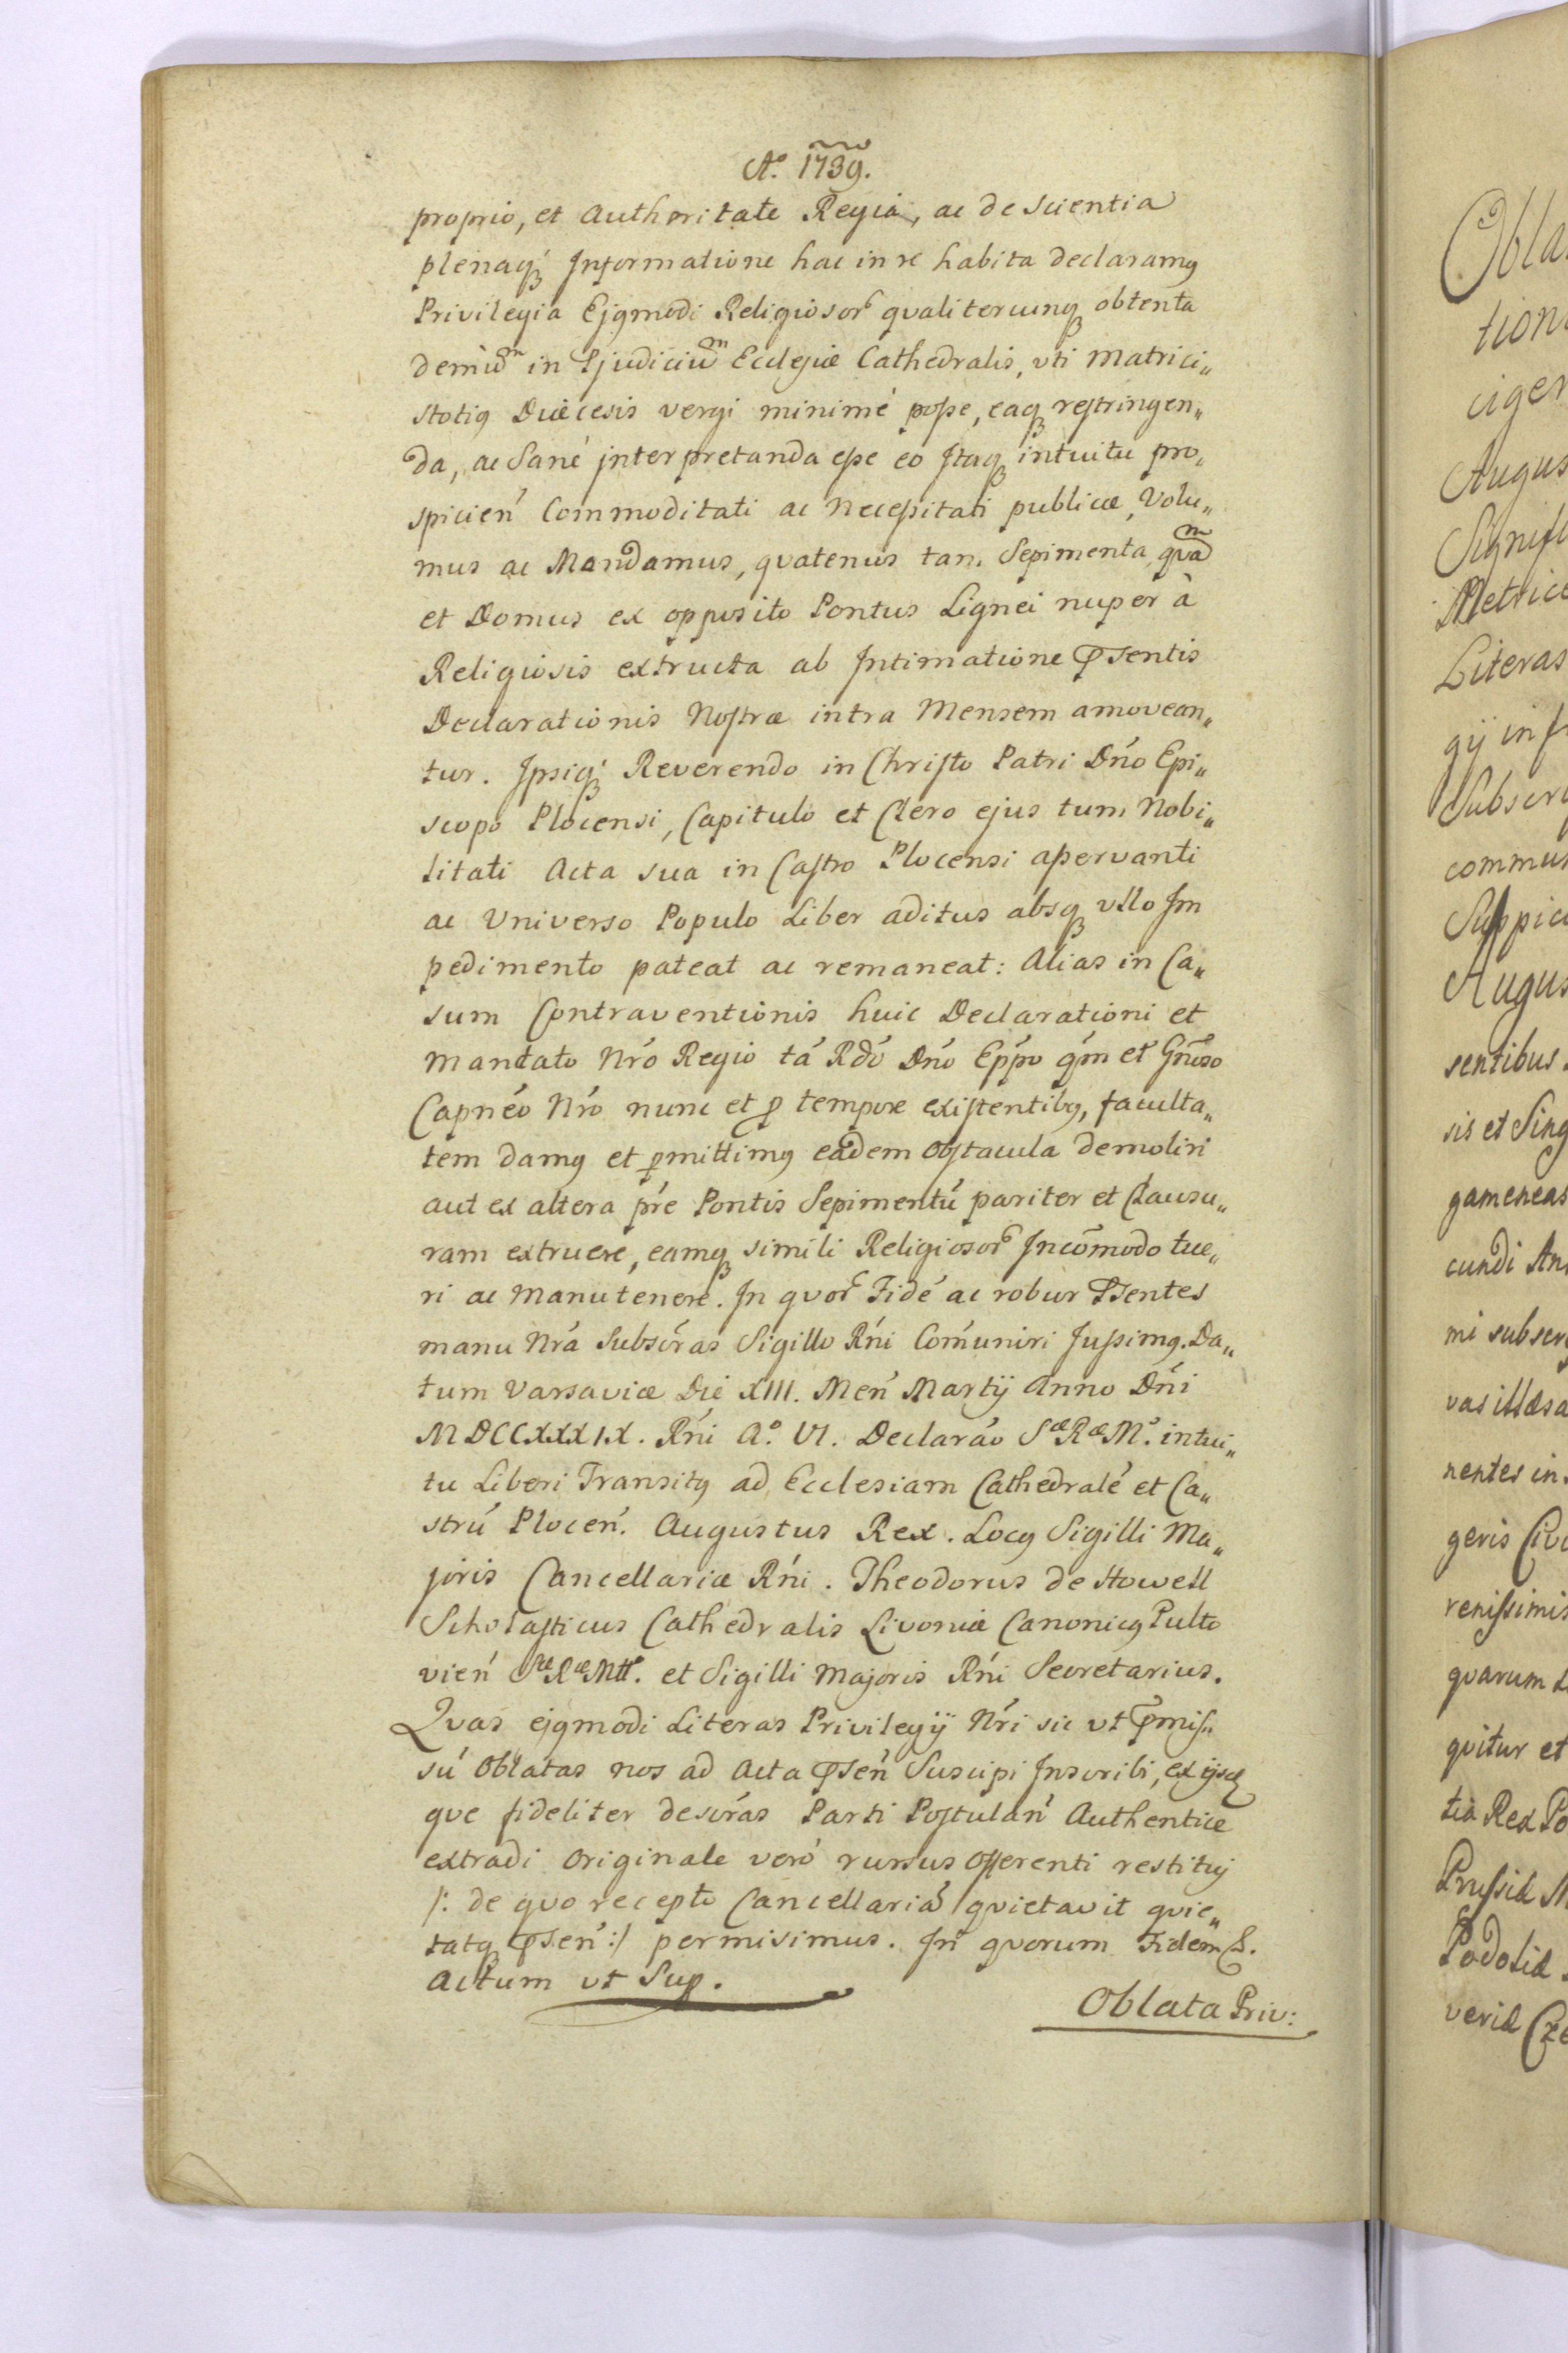 Aº. 1739.
proprio, et Authoritate Regia, ac de scientia
plenaqꝫ Informatione hac in re habita declaramꝰ
Privilegia Ejꝰmodi Religiosorꝫ qvalitercunqꝫ obtenta
demũ in Pjudiciũ Ecclesiæ Cathedralis, vti Matrici„
s totiꝰ Diœcesis vergi minimé posse, eaqꝫ restringen„
da, ac Sané jnterpretanda esse eo Itaqꝫ intuitu pro„
spicień Commoditati ac Necessitati publicæ, Volu„
mus ac Mandamus, qvatenus tam Sepimenta, qvam
et Domus ex opposito Pontus Lignei nuper à
Religiosis extructa ab Intimatione Psentis
Declarationis Nostræ intra Mensem amovean„
tur. Ipsiqꝫ Reverendo in Christo Patri Dńo Epi„
scopo Plocensi, Capitulo et Clero ejus tum Nobi„
litati Acta sua in Castro Plocensi asservanti
ac Universo Populo Liber aditus absqꝫ vllo Im
pedimento pateat ac remaneat: Alias in Ca„
sum Contraventionis huic Declarationi et
Mandato Nŕo Regio tá Rdo Dńo Eppo qm et Gnoso
Capnéo Nŕo nunc et ꝓ tempore existentibꝰ, faculta„
tem damꝰ et ꝑmittimꝰ eadem obstacula demoliri
aut ex altera pŕe Pontis Sepimentú pariter et Clausu„
ram extruere, eamqꝫ simili Religiosorꝫ Incomodo tue„
ri ac Manutenere. In qvorꝫ Fidé ac robur Psentes
manu Nŕa Subscŕas Sigillo Rńi Comuniri Jussimꝰ. Da„
tum Varsaviæ Die XIII. Meń Martij Anno Dńi
MDCCXXXIX. Rńi Aº. VI. Declaráo Sæ Ræ Mis. intui„
tu Liberi Transitꝰ ad Ecclesiam Cathedralé et Ca„
strú Ploceń. Augustus Rex. Locꝰ Sigilli Ma„
joris Cancellariæ Rńi. Theodorus de Howell
Scholasticus Cathedralis Livoniæ Canonicꝰ Pulto
vień Sæ Ræ Mttis. et Sigilli Majoris Rńi Secretarius.
Qvas ejꝰmodi Literas Privilegij Nŕi sic vt Pmis„
sú Oblatas nos ad Acta Pseń Suscipi Inscribi, ex ijsdē
qve fideliter descŕas Parti Postulań Authentice
extradi originale veró rursus Offerenti restitui
/: de qvo recepto Cancellariā qvietavit qvie„
tatqꝫ Pseń :/ permisimus. In qvorum Fidem &.
Actum vt Sup.
Oblata Priv:
Obla
tion
ciger
Augus
Signifi
Metrice
Literas
gij in f
Subscr
commun
Suspici
Augus
sentibus
sis et Sing
gameneas
cundi An
mi subscr
vas illæsa
nentes in
geris Civi
renissimis
qvarum
qvitur et
tia Rex Po
Prussiæ M
Podoliæ
veriæ Cze